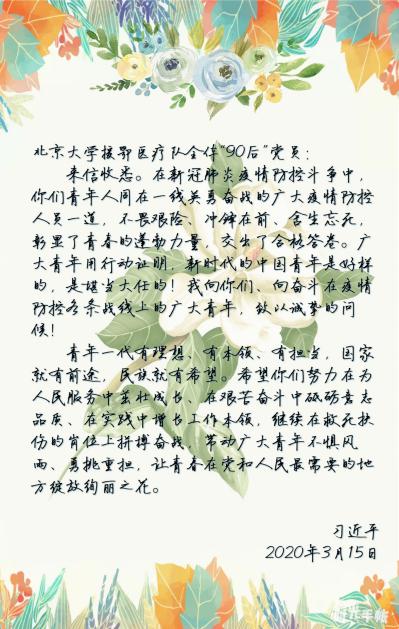 北京大学援鄂医疗队全体“90后”党员：
来信收悉。在新冠肺炎疫情防控斗争中，
你们青年人同在一线英勇奋战的广大疫情防控
人员一道，不畏艰险、冲锋在前、舍生忘死，
彰显了青春的蓬勃力量，交出了合格答卷。广
大青年用行动证明，新时代的中国青年是好样
的，是堪当大任的！我向你们、向奋斗在疫情
防控各条战线上的广大青年，致以诚挚的问
候！
青年一代有理想、有本领、有担当，国家
就有前途，民族就有希望。希望你们努力在为
人民服务中茁壮成长、在艰苦奋斗中砥砺意志
品质、在实践中增长工作本领，继续在救死扶
伤的岗位上拼搏奋战，带动广大青年不惧风
雨、勇挑重担，让青春在党和人民最需要的地
方绽放绚丽之花。
习近平
2020年3月15日